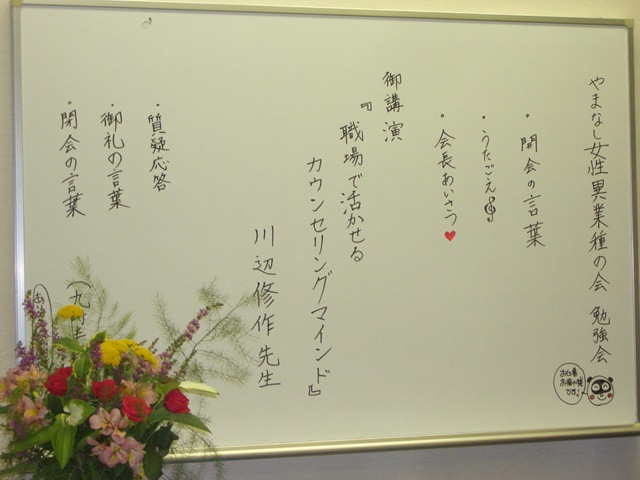 やまなし女性異業種の会 勉強会
・開会の言葉
・うたごえ
・会長あいさつ
御講演
『職場で活かせる
カウンセリングマインド』
川辺修作先生
・質疑応答
・御礼の言葉
・閉会の言葉
お仕事
お疲れ様
です!